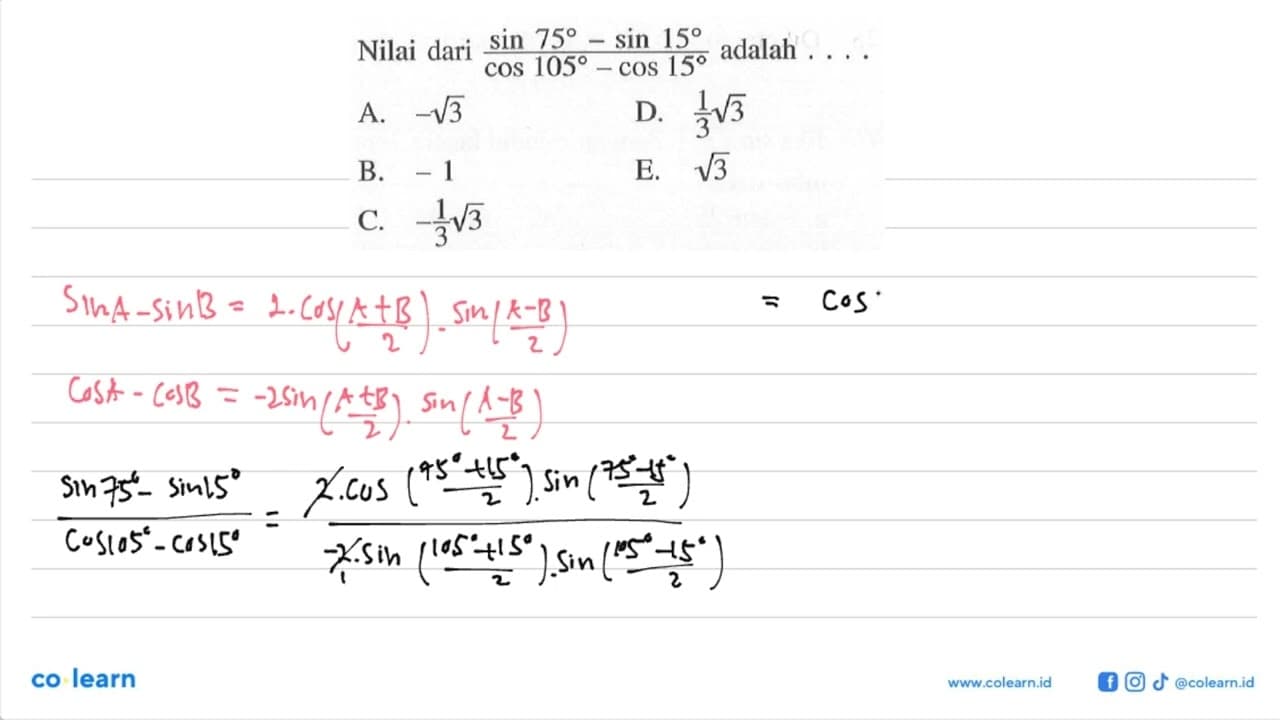 Nilai dari (sin 75° – sin 15°)/(cos 105° – cos 15°) adalah . . . .
A. –√3
D. 1/3 √3
B. – 1
E. √3
C. –1/3 √3
SinA - SinB = 2.Cos((A+B)/2) . Sin((A-B)/2)
= Cos
CosA - CosB = -2Sin((A+B)/2) . Sin((A-B)/2)
(Sin75° - Sin15°)/(Cos105° - Cos15°) = (2.Cos((75°+15°)/2) . Sin((75°-15°)/2))/(-2.Sin((105°+15°)/2) . Sin((105°-15°)/2))
1
co learn
www.colearn.id
@colearn.id